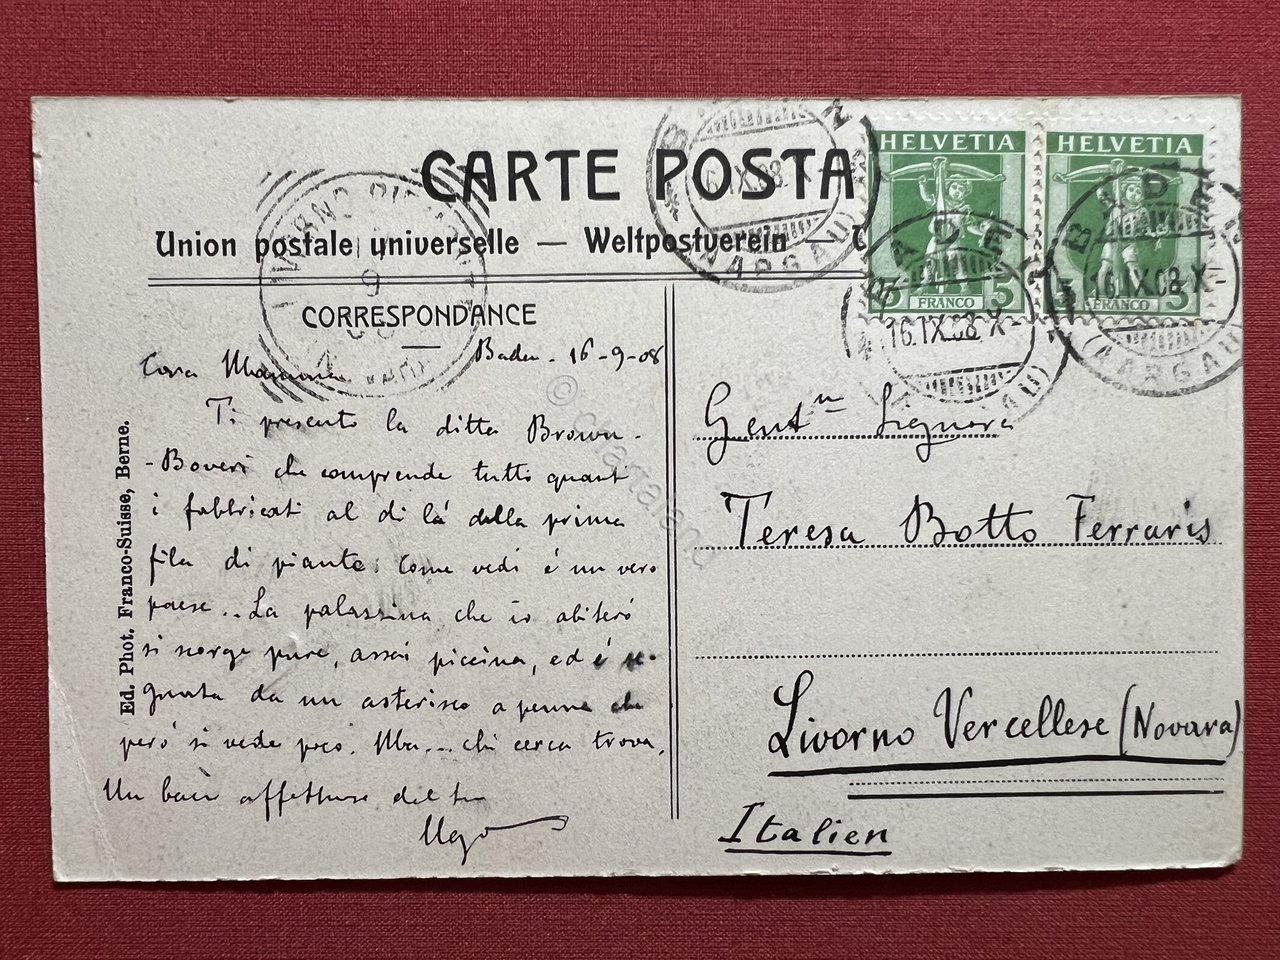 CARTE POSTA
Union postale universelle — Weltpostverein —
CORRESPONDANCE
HELVETIA
FRANCO 5
HELVETIA
FRANCO 5
BADEN
16.IX.08.X-
(AARGAU)
BADEN
16.IX.08.X-
(AARGAU)
Baden - 16-9-08
Cara Mamma
Ti presento la ditta Brown-
-Boveri che comprende tutti quanti
i fabbricati al di là della prima
fila di piante. Come vedi é un vero
paese... La palazzina che io abiteró
si scorge pure, assai piccina, ed é se-
gnata da un asterisco a penna che
peró si vede poco. Ma... chi cerca trova.
Un bacio affettuoso dal tuo
Ugo
Gent.ma Signora
Teresa Botto Ferraris
Livorno Vercellese (Novara)
Italien
Ed. Phot. Franco-Suisse, Berne.
© cartaland